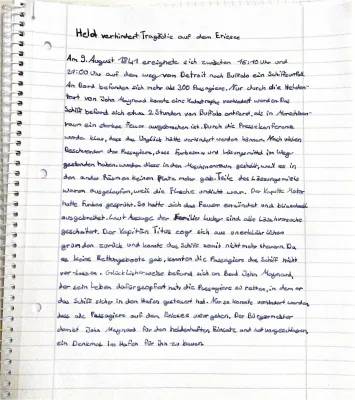 Held verhindert Tragödie auf dem Eriesee
Am 9. August 1841 ereignete sich zwischen 16:10 Uhr und
21:00 Uhr auf dem weg von Detroit nach Buffalo ein Schiffsunfall.
An Bord befanden sich mehr als 300 Passagiere. Nur durch die Helden-
tat von John Maynard konnte eine Katastrophe verhindert werden. Das
Schiff befand sich etwa 2 Stunden von Buffalo entfernt, als im Maschinen-
raum ein starkes Feuer ausgebrochen ist. Durch die Pressekonferenz
wurde klar, dass das Unglück hätte verhindert werden können. Nach vielen
Beschwerden der Passagiere, dass Farbeimer und Lösungsmittel im Weg
gestanden haben, wurden diese in den Maschinenraum gestellt, weil es in
den andren Räumen keinen Platz mehr gab. Teile des Lösungsmittels
waren ausgelaufen, weil die Flasche undicht war. Der Kaputte Motor
hatte Funken gesprüht. So hatte sich das Feuer entzündet und blitzschnell
ausgebreitet. Laut Aussage der Familie sind alle Löschversuche
gescheitert. Der Kapitän Titus zog sich aus unerklärlichen
gründen zurück und konnte das Schiff somit nicht mehr steuern. Da
es keine Rettungsboote gab, konnten die Passagiere das Schiff nicht
verlassen. Glücklicherweise befand sich an Bord John Maynard,
der sein Leben dafür geopfert hat die Passagiere zu retten, in dem er
das Schiff sicher in den Hafen gesteuert hat. Nur so konnte verhindert werden,
dass alle Passagiere auf dem Eriesee untergehen. Der Bürgermeister
dankt John Maynard für den heldenhaften Einsatz und hat vorgeschlagen,
ein Denkmal im Hafen für ihn zu bauen.